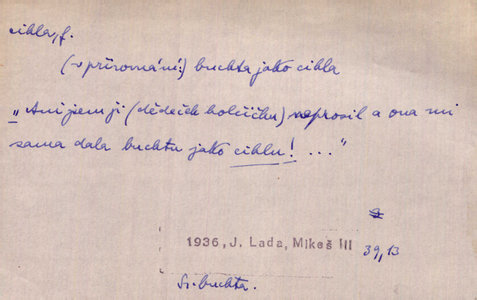 cihla, f.
(v přirovnání:) buchta jako cihla
„Ani jsem ji (dědeček holčičku) neprosil a ona mi
sama dala buchtu jako cihlu! ..."
1936, J. Lada, Mikeš III
39,13
Sr. buchta.